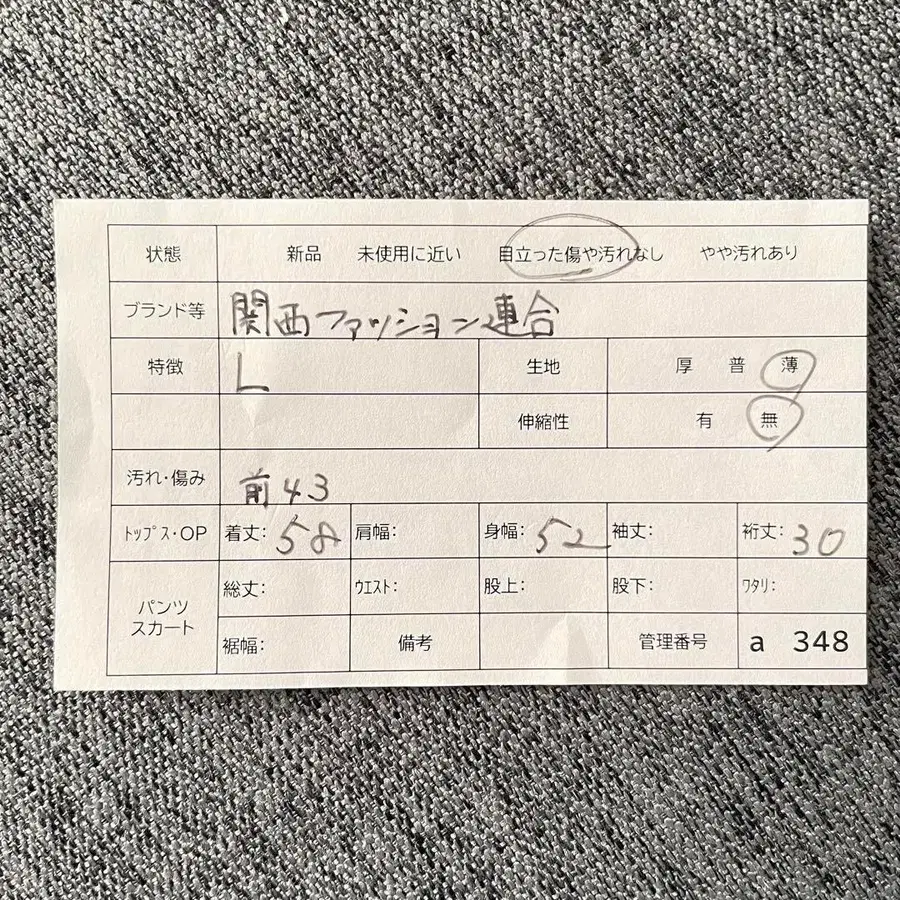 状態 新品 未使用に近い 目立った傷や汚れなし やや汚れあり
ブランド等 関西ファッション連合
特徴 L 生地 厚 普 薄
伸縮性 有 無
汚れ・傷み 前43
トップス・OP 着丈: 58 肩幅: 身幅: 52 袖丈: 裄丈: 30
パンツ スカート 総丈: ウエスト: 股上: 股下: ワタリ:
裾幅: 備考 管理番号 a 348